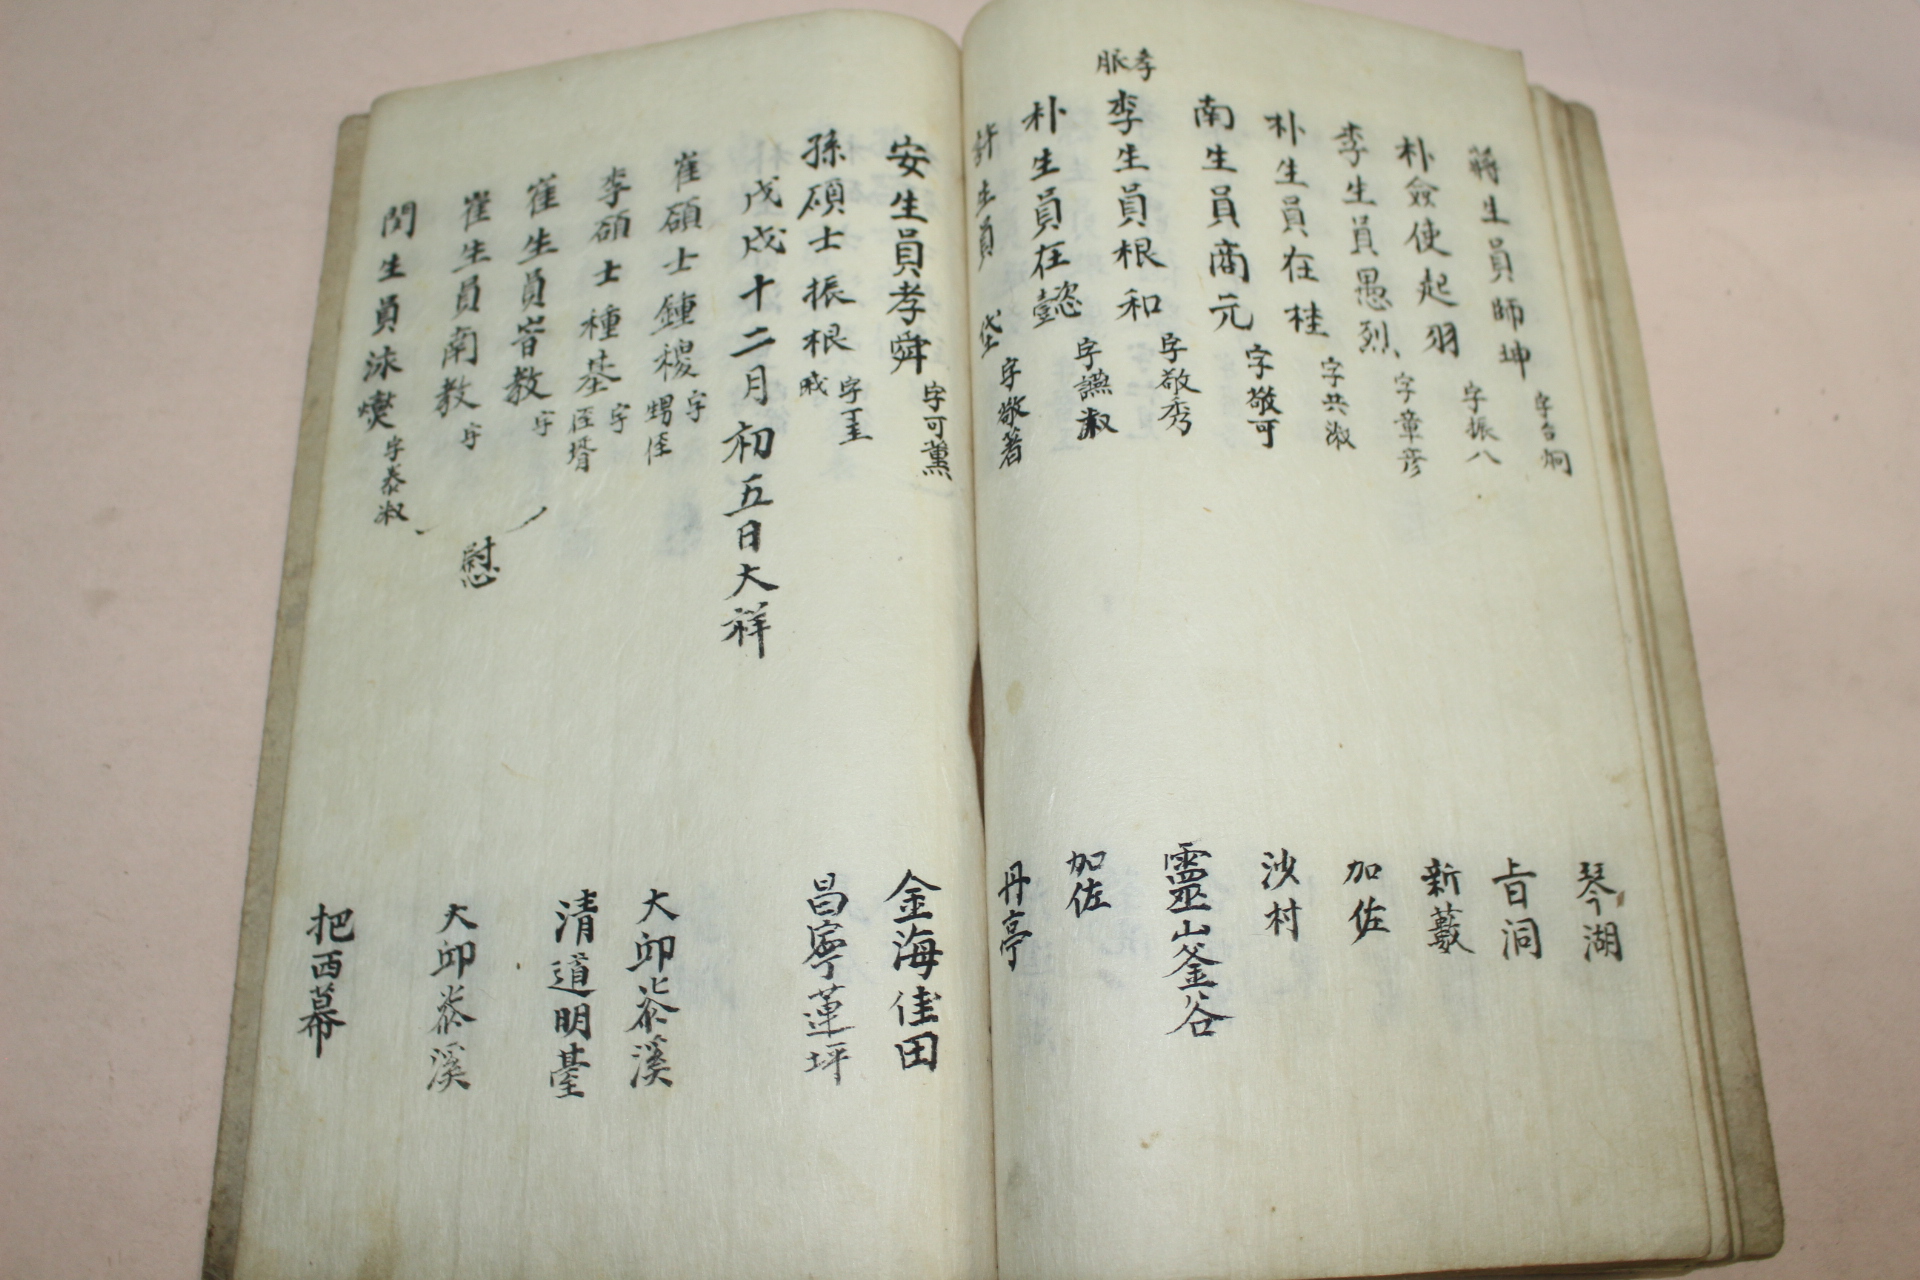 蔣生員師坤 字台炯 琴湖
朴僉使起羽 字振八 旨洞
李生員愚烈 字章彦 新藪
朴生員在桂 字共淑 加佐
南生員商元 字敬可 沙村
孝脈
李生員根和 字敬秀 靈山釜谷
朴生員在懿 字讌淑 加佐
許生員垈 字敬著 丹亭
安生員孝舜 字可薰 金海佳田
孫碩士振根 字 戚 昌寧蓮坪
戊戌十二月初五日大祥
崔碩士鍾稷 字 甥侄 大邱 溪
李碩士種基 字 侄壻 清道明臺
崔生員 教 字
崔生員南教 字 大邱 溪
慰
閔生員泳 字泰淑 把西幕